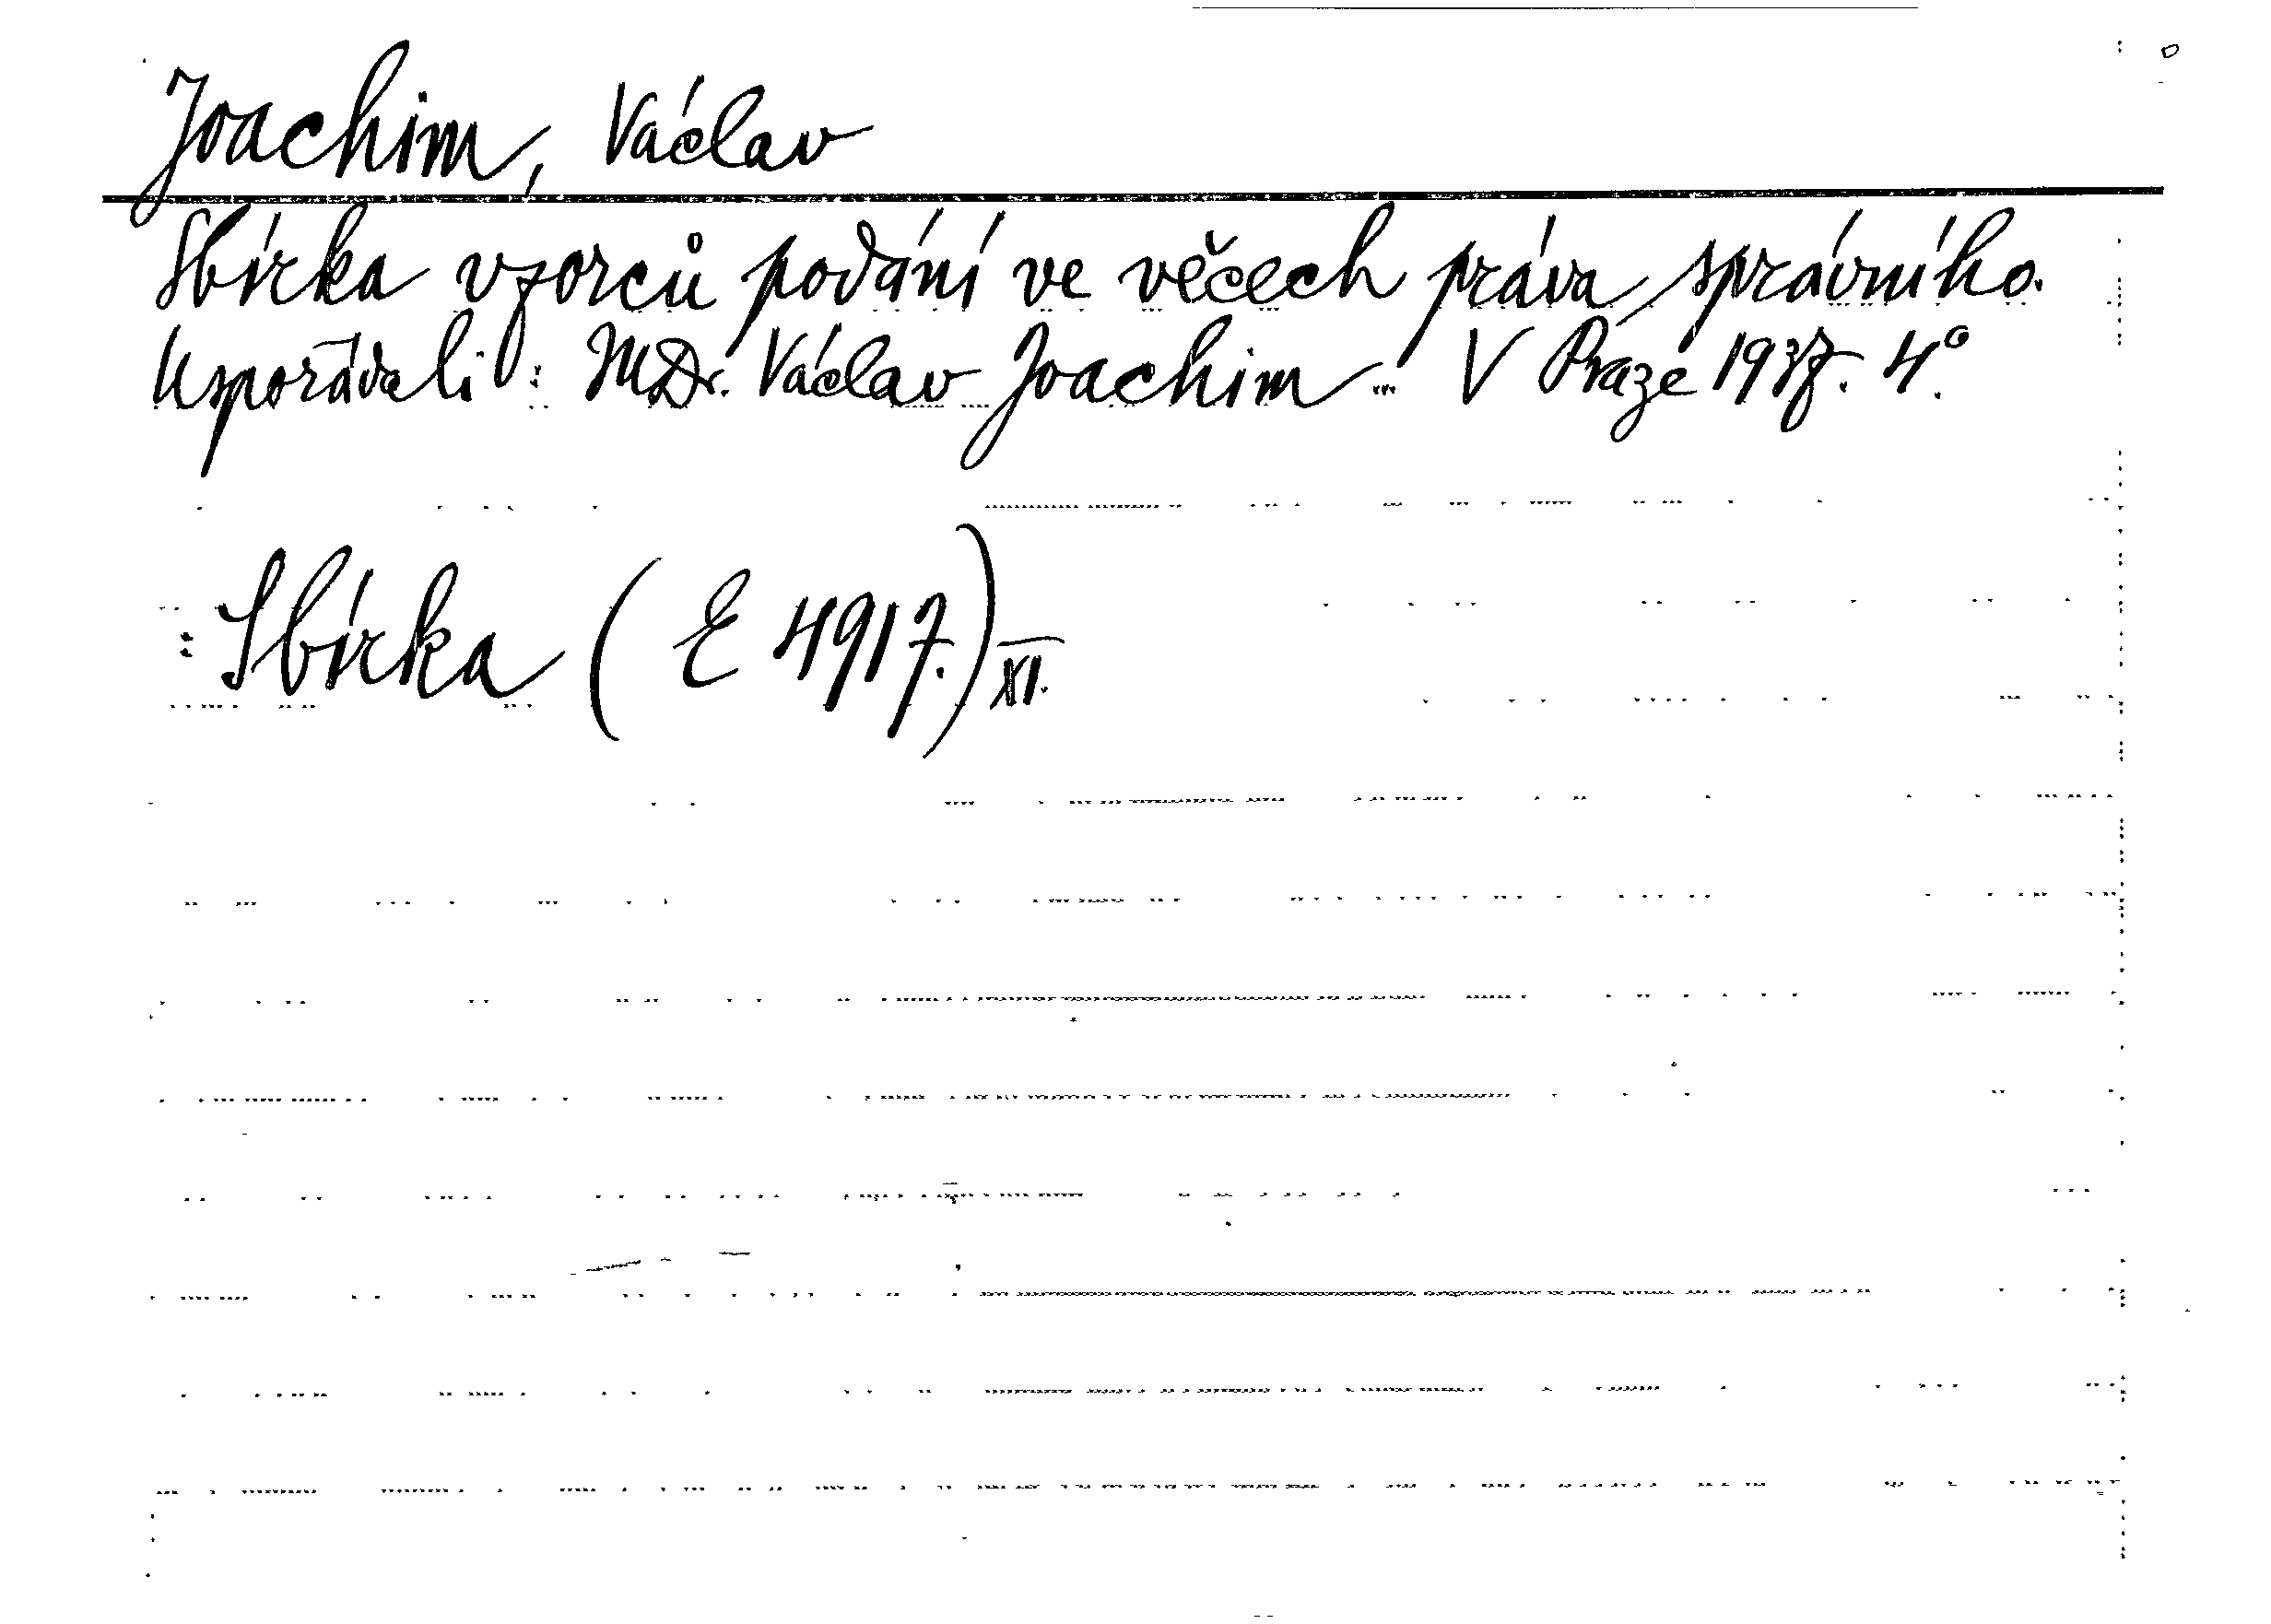 Joachim, Václav
Sbírka vzorců podání ve věcech práva správního.
Uspořádali: JUDr. Václav Joachim ... V Praze 1937. 4°.
: Sbírka (E 4917.) XI.